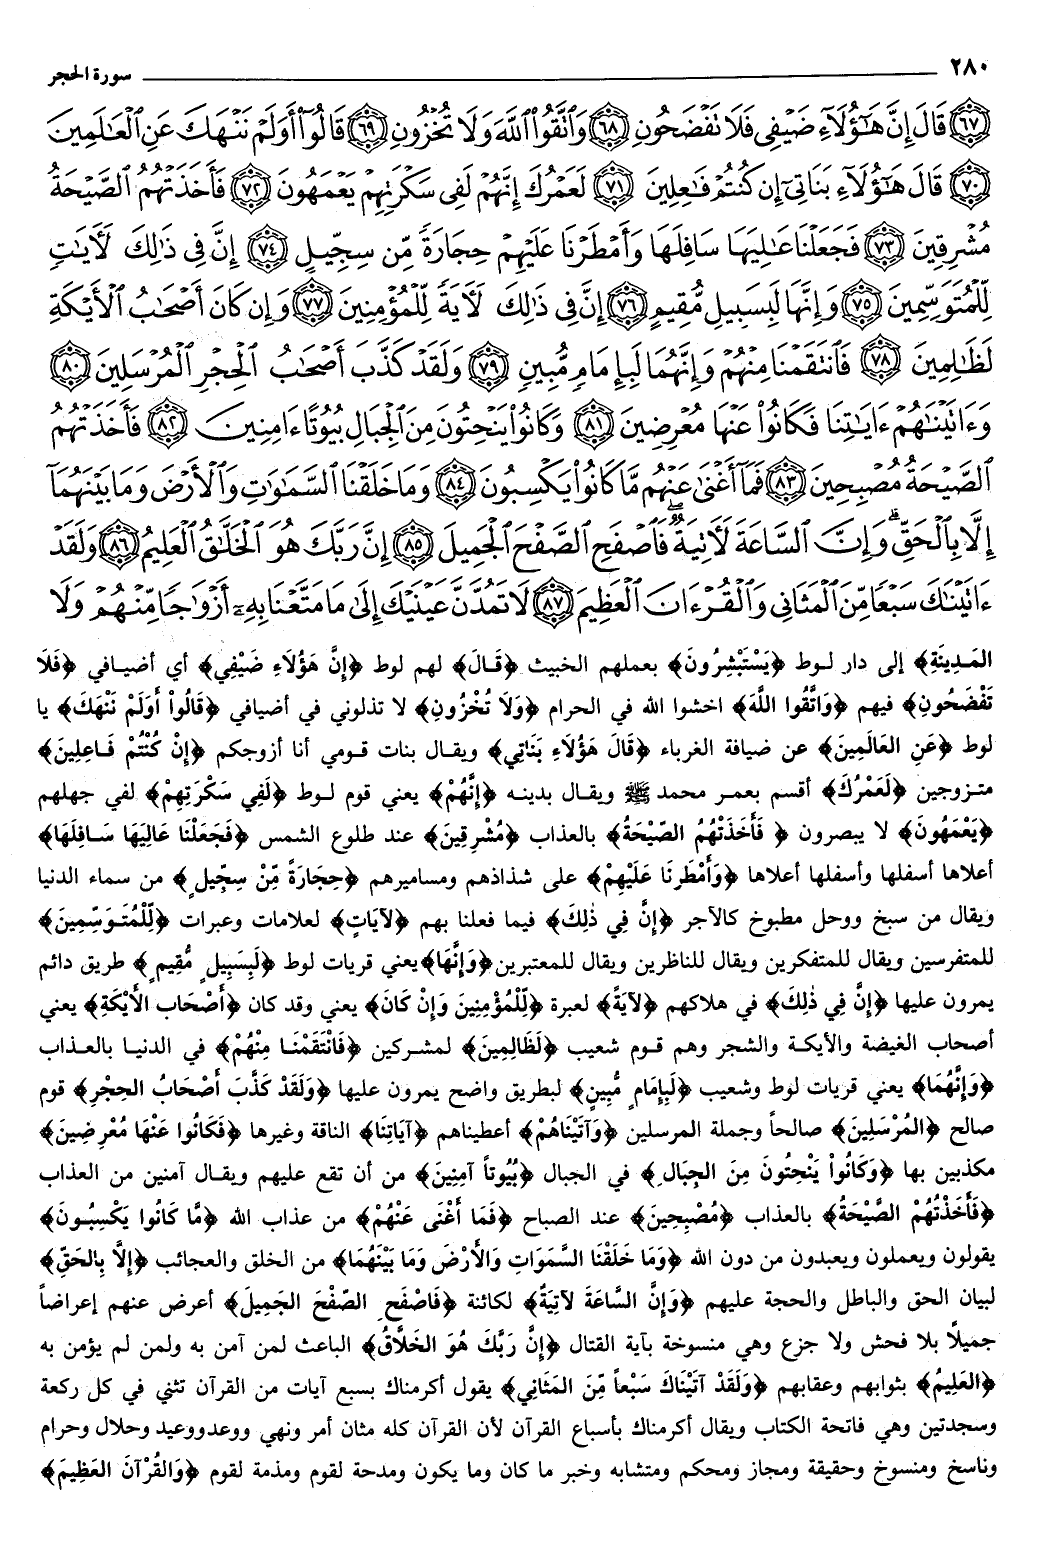 ٢٨٠ سورة الحجر
﴿٦٧﴾ قَالَ إِنَّ هَٰٓؤُلَآءِ ضَيْفِى فَلَا تَفْضَحُونِ ﴿٦٨﴾ وَٱتَّقُوا۟ ٱللَّهَ وَلَا تُخْزُونِ ﴿٦٩﴾ قَالُوٓا۟ أَوَلَمْ نَنْهَكَ عَنِ ٱلْعَٰلَمِينَ
﴿٧٠﴾ قَالَ هَٰٓؤُلَآءِ بَنَاتِىٓ إِن كُنتُمْ فَٰعِلِينَ ﴿٧١﴾ لَعَمْرُكَ إِنَّهُمْ لَفِى سَكْرَتِهِمْ يَعْمَهُونَ ﴿٧٢﴾ فَأَخَذَتْهُمُ ٱلصَّيْحَةُ
مُشْرِقِينَ ﴿٧٣﴾ فَجَعَلْنَا عَٰلِيَهَا سَافِلَهَا وَأَمْطَرْنَا عَلَيْهِمْ حِجَارَةً مِّن سِجِّيلٍ ﴿٧٤﴾ إِنَّ فِى ذَٰلِكَ لَءَايَٰتٍ
لِّلْمُتَوَسِّمِينَ ﴿٧٥﴾ وَإِنَّهَا لَبِسَبِيلٍ مُّقِيمٍ ﴿٧٦﴾ إِنَّ فِى ذَٰلِكَ لَءَايَةً لِّلْمُؤْمِنِينَ ﴿٧٧﴾ وَإِن كَانَ أَصْحَٰبُ ٱلْأَيْكَةِ
لَظَٰلِمِينَ ﴿٧٨﴾ فَٱنتَقَمْنَا مِنْهُمْ وَإِنَّهُمَا لَبِإِمَامٍ مُّبِينٍ ﴿٧٩﴾ وَلَقَدْ كَذَّبَ أَصْحَٰبُ ٱلْحِجْرِ ٱلْمُرْسَلِينَ ﴿٨٠﴾
وَءَاتَيْنَٰهُمْ ءَايَٰتِنَا فَكَانُوا۟ عَنْهَا مُعْرِضِينَ ﴿٨١﴾ وَكَانُوا۟ يَنْحِتُونَ مِنَ ٱلْجِبَالِ بُيُوتًا ءَامِنِينَ ﴿٨٢﴾ فَأَخَذَتْهُمُ
ٱلصَّيْحَةُ مُصْبِحِينَ ﴿٨٣﴾ فَمَآ أَغْنَىٰ عَنْهُم مَّا كَانُوا۟ يَكْسِبُونَ ﴿٨٤﴾ وَمَا خَلَقْنَا ٱلسَّمَٰوَٰتِ وَٱلْأَرْضَ وَمَا بَيْنَهُمَآ
إِلَّا بِٱلْحَقِّ ۗ وَإِنَّ ٱلسَّاعَةَ لَءَاتِيَةٌ ۖ فَٱصْفَحِ ٱلصَّفْحَ ٱلْجَمِيلَ ﴿٨٥﴾ إِنَّ رَبَّكَ هُوَ ٱلْخَلَّٰقُ ٱلْعَلِيمُ ﴿٨٦﴾ وَلَقَدْ
ءَاتَيْنَٰكَ سَبْعًا مِّنَ ٱلْمَثَانِى وَٱلْقُرْءَانَ ٱلْعَظِيمَ ﴿٨٧﴾ لَا تَمُدَّنَّ عَيْنَيْكَ إِلَىٰ مَا مَتَّعْنَا بِهِۦٓ أَزْوَٰجًا مِّنْهُمْ وَلَا
المَدِينَةِ﴾ إلى دار لوط ﴿يَسْتَبْشِرُونَ﴾ بعملهم الخبيث ﴿قَالَ﴾ لهم لوط ﴿إِنَّ هَؤُلَاءِ ضَيْفِي﴾ أي أضيافي ﴿فَلَا
تَفْضَحُونِ﴾ فيهم ﴿وَاتَّقُوا اللَّهَ﴾ اخشوا الله في الحرام ﴿وَلَا تُخْزُونِ﴾ لا تذلوني في أضيافي ﴿قَالُواْ أَوَلَمْ نَنْهَكَ﴾ يا
لوط ﴿عَنِ العَالَمِينَ﴾ عن ضيافة الغرباء ﴿قَالَ هَؤُلَاءِ بَنَاتِي﴾ ويقال بنات قومي أنا أزوجكم ﴿إِنْ كُنْتُمْ فَاعِلِينَ﴾
متزوجين ﴿لَعَمْرُكَ﴾ أقسم بعمر محمد ﷺ ويقال بدينه ﴿إِنَّهُمْ﴾ يعني قوم لوط ﴿لَفِي سَكْرَتِهِمْ﴾ لفي جهلهم
﴿يَعْمَهُونَ﴾ لا يبصرون ﴿فَأَخَذَتْهُمُ الصَّيْحَةُ﴾ بالعذاب ﴿مُشْرِقِينَ﴾ عند طلوع الشمس ﴿فَجَعَلْنَا عَالِيَهَا سَافِلَهَا﴾
أعلاها أسفلها وأسفلها أعلاها ﴿وَأَمْطَرنَا عَلَيْهِمْ﴾ على شذاذهم ومساميرهم ﴿حِجَارَةً مِّنْ سِجِّيلٍ﴾ من سماء الدنيا
ويقال من سبخ ووحل مطبوخ كالآجر ﴿إِنَّ فِي ذٰلِكَ﴾ فيما فعلنا بهم ﴿لآيَاتٍ﴾ لعلامات وعبرات ﴿لِّلْمُتَوَسِّمِينَ﴾
للمتفرسين ويقال للمتفكرين ويقال للناظرين ويقال للمعتبرين ﴿وَإِنَّهَا﴾ يعني قريات لوط ﴿لَبِسَبِيلٍ مُّقِيمٍ﴾ طريق دائم
يمرون عليها ﴿إِنَّ فِي ذٰلِكَ﴾ في هلاكهم ﴿لآيَةً﴾ لعبرة ﴿لِّلْمُؤْمِنِينَ وَإِنْ كَانَ﴾ يعني وقد كان ﴿أَصْحَابُ الأَيْكَةِ﴾ يعني
أصحاب الغيضة والأيكة والشجر وهم قوم شعيب ﴿لَظَالِمِينَ﴾ لمشركين ﴿فَانْتَقَمْنَا مِنْهُمْ﴾ في الدنيا بالعذاب
﴿وَإِنَّهُمَا﴾ يعني قريات لوط وشعيب ﴿لَبِإِمَامٍ مُّبِينٍ﴾ لبطريق واضح يمرون عليها ﴿وَلَقَدْ كَذَّبَ أَصْحَابُ الحِجْرِ﴾ قوم
صالح ﴿المُرْسَلِينَ﴾ صالحاً وجملة المرسلين ﴿وَآتَيْنَاهُمْ﴾ أعطيناهم ﴿آيَاتِنَا﴾ الناقة وغيرها ﴿فَكَانُوا عَنْهَا مُعْرِضِينَ﴾
مكذبين بها ﴿وَكَانُواْ يَنْحِتُونَ مِنَ الجِبَالِ﴾ في الجبال ﴿بُيُوتاً آمِنِينَ﴾ من أن تقع عليهم ويقال آمنين من العذاب
﴿فَأَخَذْتُهُمْ الصَّيْحَةُ﴾ بالعذاب ﴿مُصْبِحِينَ﴾ عند الصباح ﴿فَمَا أَغْنَى عَنْهُمْ﴾ من عذاب الله ﴿مَّا كَانُوا يَكْسِبُونَ﴾
يقولون ويعملون ويعبدون من دون الله ﴿وَمَا خَلَقْنَا السَّمَوَاتِ وَالأَرْضَ وَمَا بَيْنَهُمَا﴾ من الخلق والعجائب ﴿إِلَّا بِالحَقِّ﴾
لبيان الحق والباطل والحجة عليهم ﴿وَإِنَّ السَّاعَةَ لآتِيَةٌ﴾ لكائنة ﴿فَاصْفَحِ الصَّفْحَ الجَمِيلَ﴾ أعرض عنهم إعراضاً
جميلاً بلا فحش ولا جزع وهي منسوخة بآية القتال ﴿إِنَّ رَبَّكَ هُوَ الخَلَّاقُ﴾ الباعث لمن آمن به ولمن لم يؤمن به
﴿العَلِيمُ﴾ بثوابهم وعقابهم ﴿وَلَقَدْ آتَيْنَاكَ سَبْعاً مِّنَ المَثَانِي﴾ يقول أكرمناك بسبع آيات من القرآن تثني في كل ركعة
وسجدتين وهي فاتحة الكتاب ويقال أكرمناك بأسباع القرآن لأن القرآن كله مثان أمر ونهي ووعد ووعيد وحلال وحرام
وناسخ ومنسوخ وحقيقة ومجاز ومحكم ومتشابه وخبر ما كان وما يكون ومدحة لقوم ومذمة لقوم ﴿وَالقُرْآنَ العَظِيمَ﴾